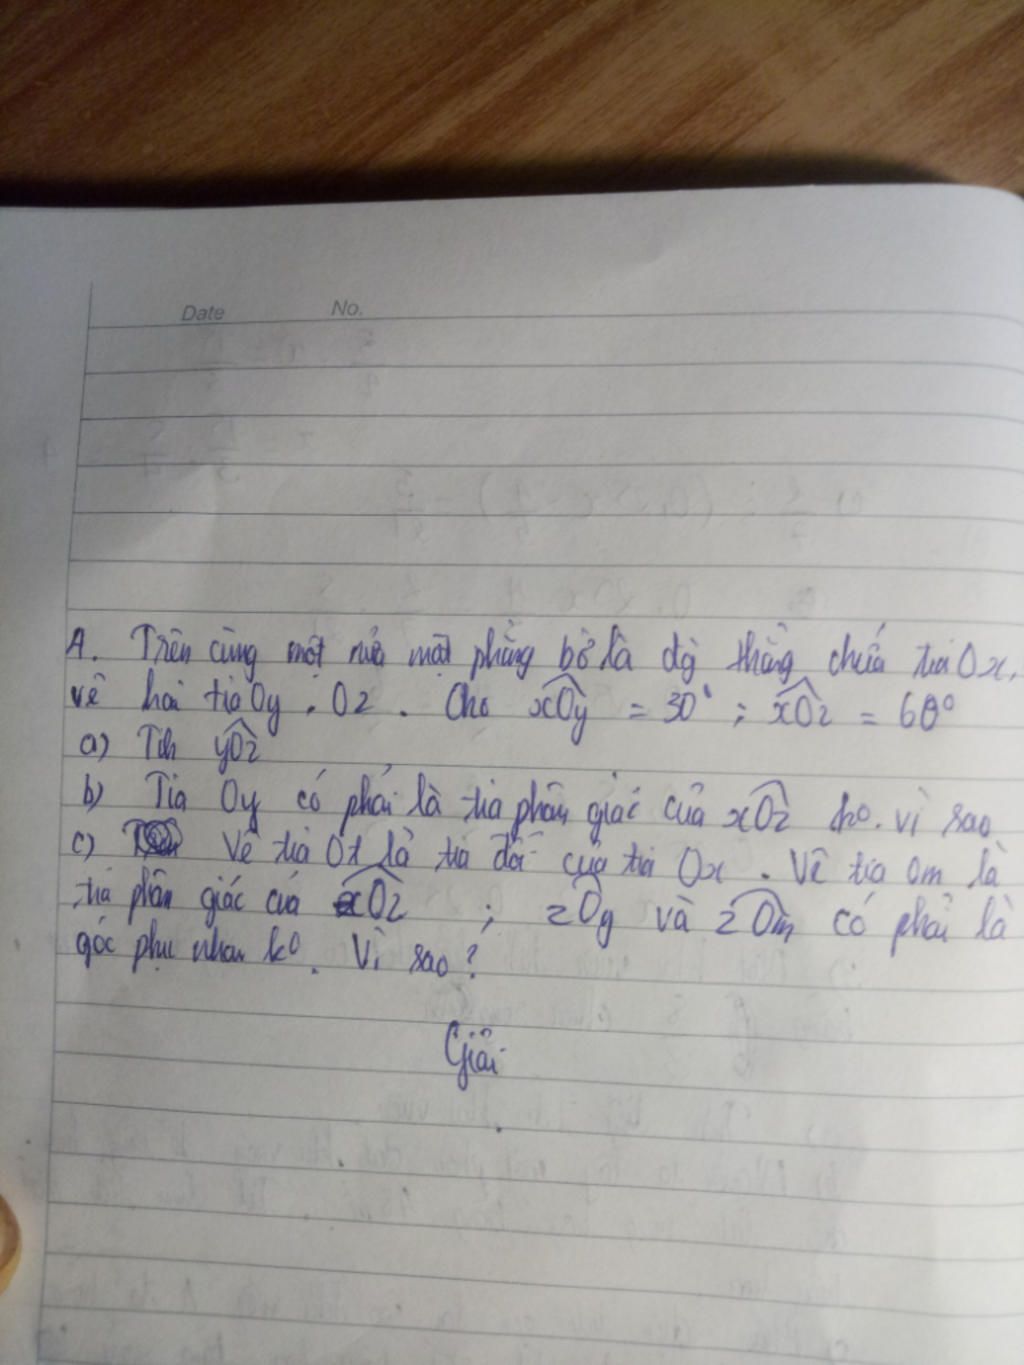 Date No.
A. Trên cùng một nửa mặt phẳng bờ là đg thẳng chứa tia Ox,
vẽ hai tia Oy, Oz. Cho xOy = 30°; xOz = 60°
a) Tính yOz
b) Tia Oy có phải là tia phân giác của xOz ko. vì sao
c) Vẽ tia Ot là tia đối của tia Ox. Vẽ tia Om là
tia phân giác của xOz ; zOy và zOm có phải là
góc phụ nhau ko. Vì sao?
Giải